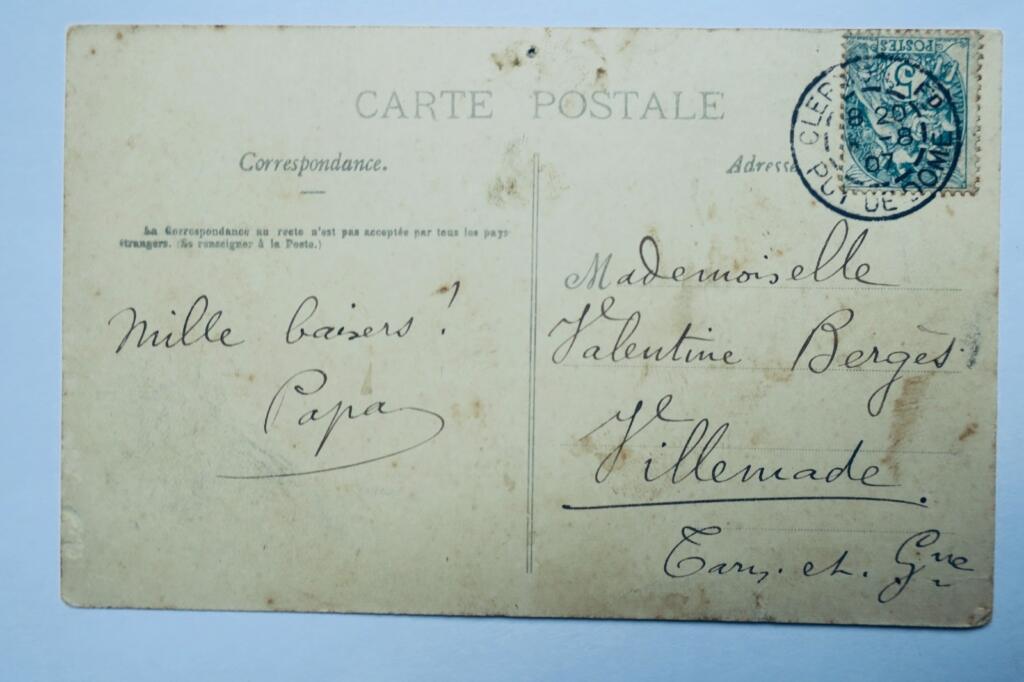 CARTE POSTALE
Correspondance.
La Correspondance au recto n'est pas acceptée par tous les pays
étrangers. (Se renseigner à la Poste.)
Mille baisers !
Papa
Adresse
POSTES
5
8 20
-8
07
PUY DE DOME
Mademoiselle
Valentine Bergès
Villemade.
Tarn. et. Gne